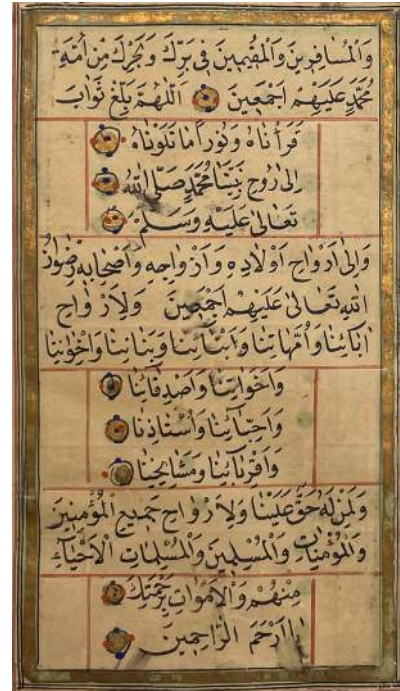 وَالْمُسَافِرِينَ وَالْمُقِيمِينَ فِي بَرِّكَ وَبَحْرِكَ مِنْ اُمَّةِ
مُحَمَّدٍ عَلَيْهِمْ اَجْمَعِينَ اَللّٰهُمَّ بَلِّغْ ثَوَابَ
قَرَأْنَاهُ وَنُورَ مَا تَلَوْنَاهُ
اِلٰى رُوحِ نَبِيِّنَا مُحَمَّدٍ صَلَّى اللّٰهُ
تَعَالٰى عَلَيْهِ وَسَلَّمَ
وَاِلٰى اَرْوَاحِ اَوْلَادِهِ وَاَزْوَاجِهِ وَاَصْحَابِهِ رِضْوَانُ
اللّٰهِ تَعَالٰى عَلَيْهِمْ اَجْمَعِينَ وَلِاَرْوَاحِ
اٰبَائِنَا وَاُمَّهَاتِنَا وَاَبْنَائِنَا وَبَنَاتِنَا وَاِخْوَانِنَا
وَاَخَوَاتِنَا وَاَصْدِقَائِنَا
وَاَحِبَّائِنَا وَاُسْتَاذِنَا
وَاَقْرِبَائِنَا وَمَشَايِخِنَا
وَلِمَنْ لَهُ حَقٌّ عَلَيْنَا وَلِاَرْوَاحِ جَمِيعِ الْمُؤْمِنِينَ
وَالْمُؤْمِنَاتِ وَالْمُسْلِمِينَ وَالْمُسْلِمَاتِ الْاَحْيَاءِ
مِنْهُمْ وَالْاَمْوَاتِ بِرَحْمَتِكَ
يَا اَرْحَمَ الرَّاحِمِينَ